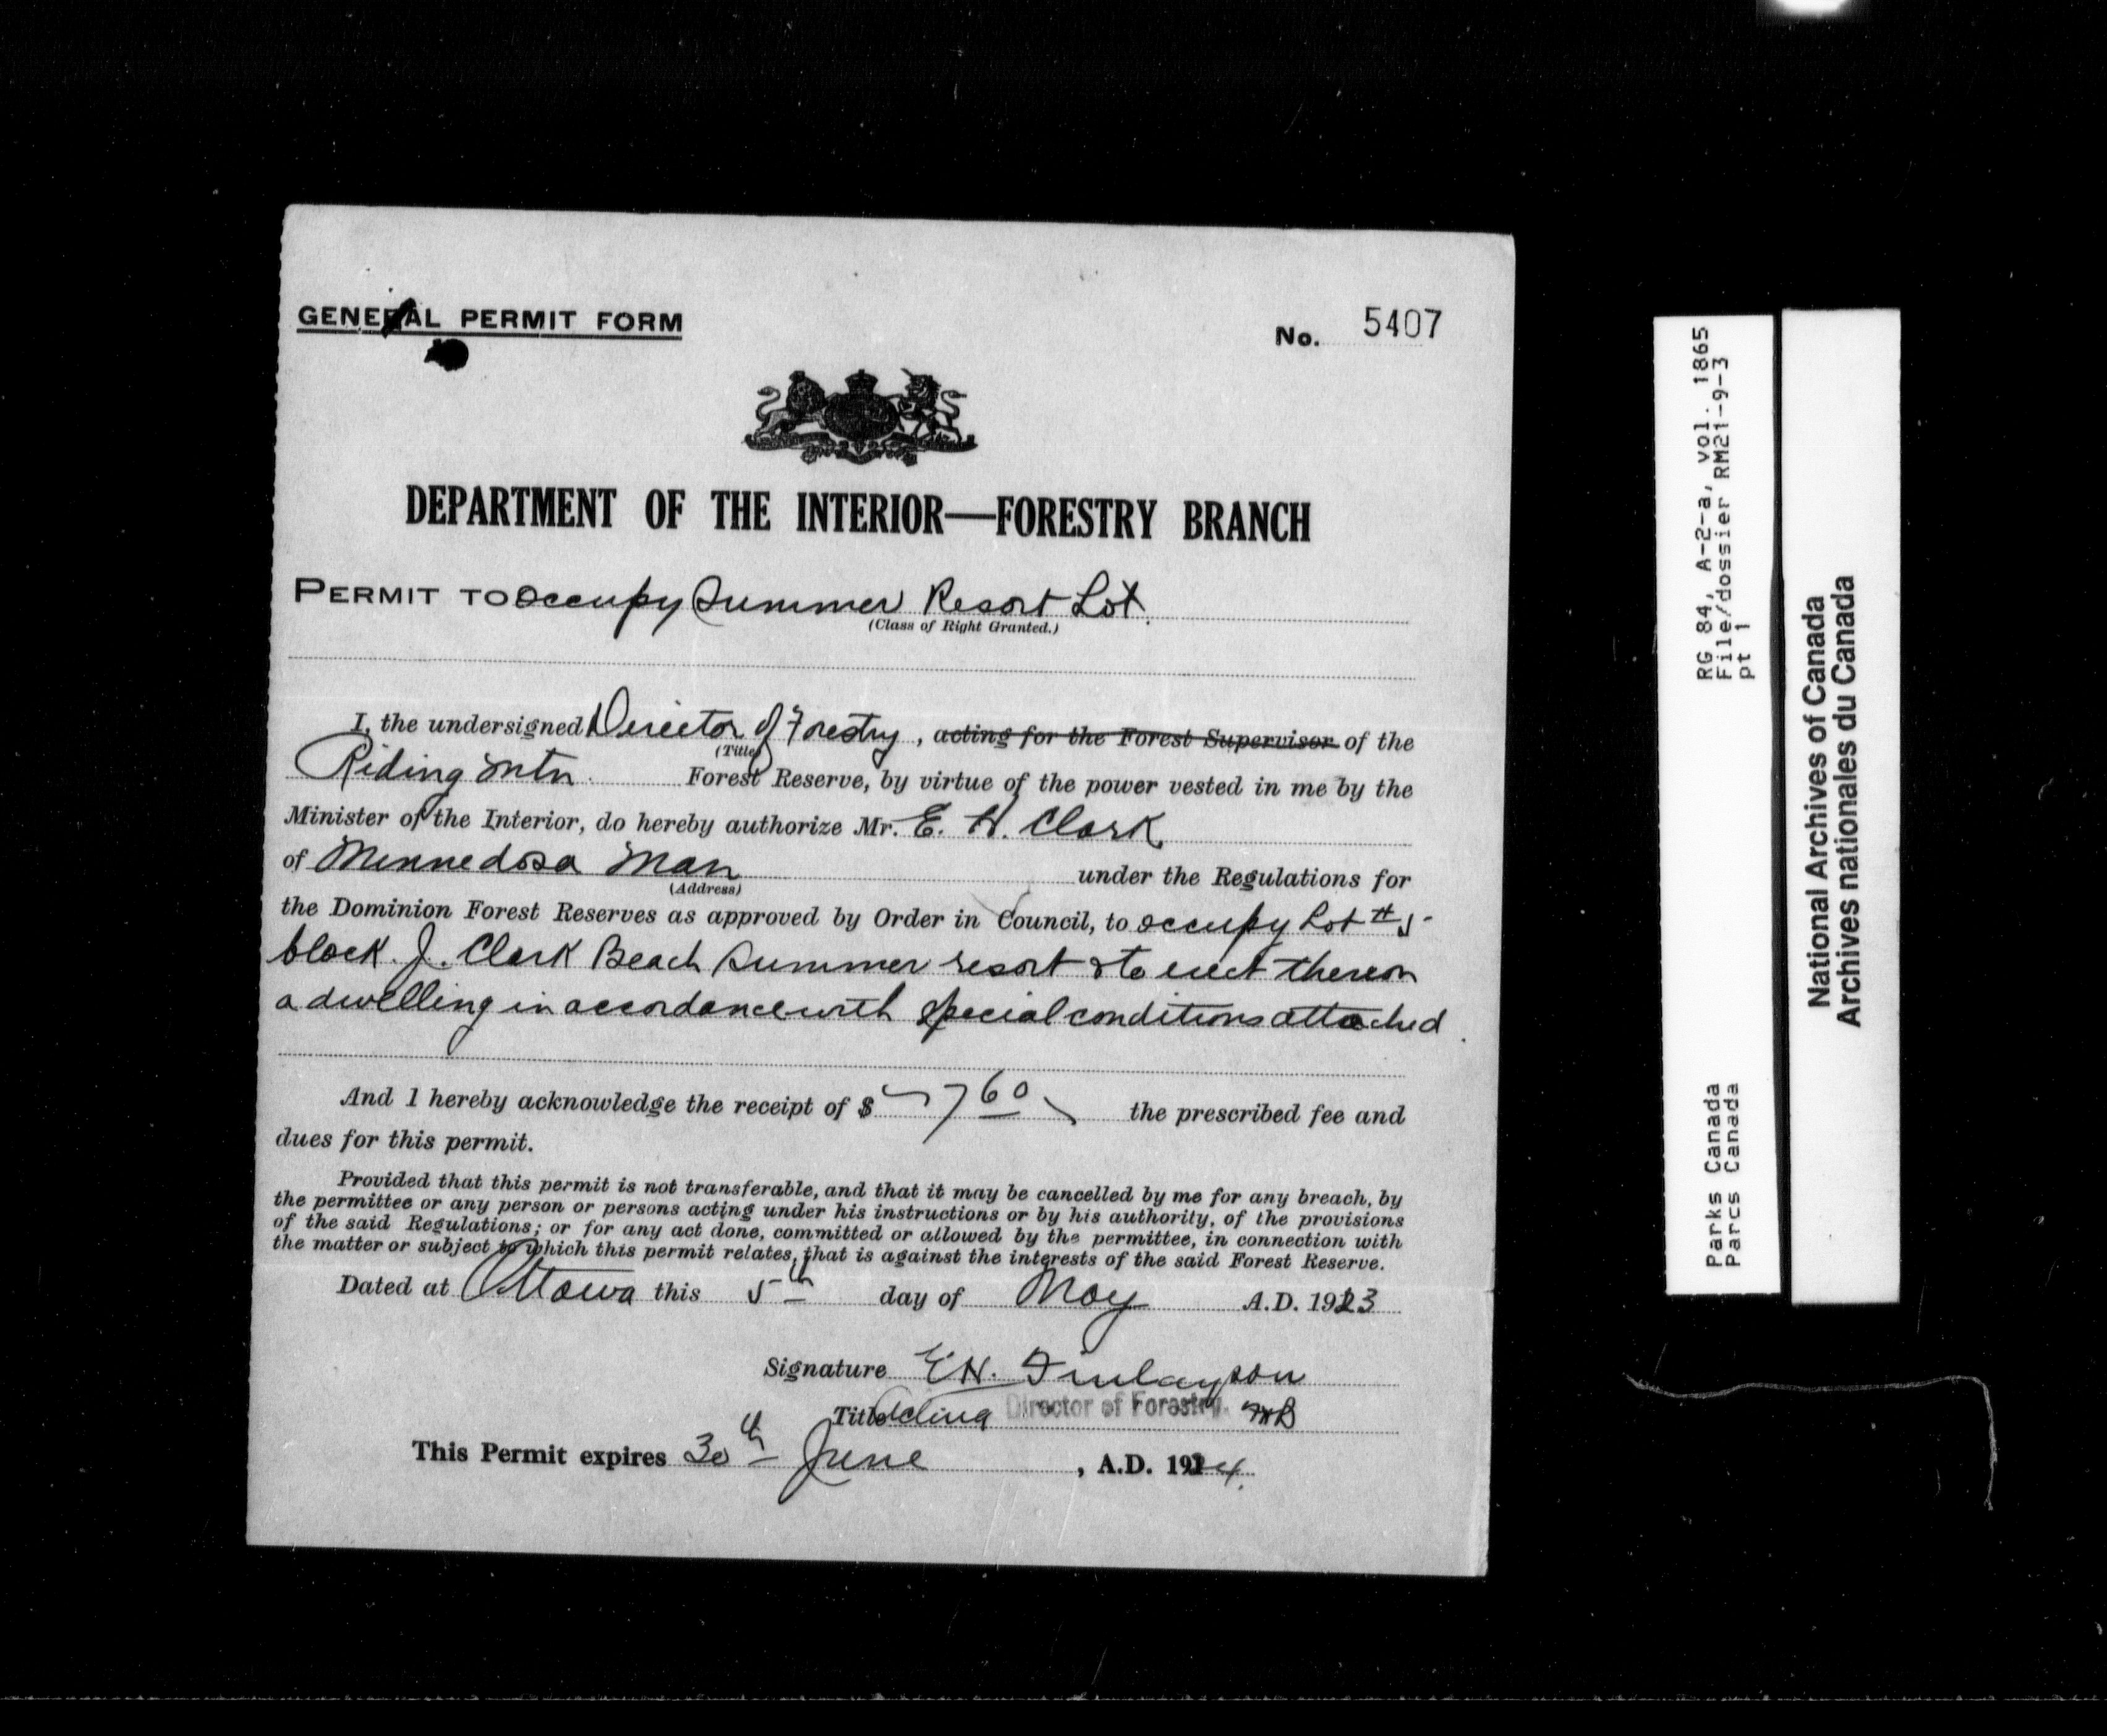 GENERAL PERMIT FORM
No. 5407
DEPARTMENT OF THE INTERIOR—FORESTRY BRANCH
PERMIT TO occupy Summer Resort Lot.
(Class of Right Granted.)
I, the undersigned Director of Forestry, acting for the Forest Supervisor of the
(Title)
Riding Mtn. Forest Reserve, by virtue of the power vested in me by the
Minister of the Interior, do hereby authorize Mr. E. H. Clark
of Minnedosa Man under the Regulations for
(Address)
the Dominion Forest Reserves as approved by Order in Council, to occupy Lot # 5
block. J. Clark Beach Summer resort & to erect thereon
a dwelling in accordance with special conditions attached.
And I hereby acknowledge the receipt of $ 7 60 the prescribed fee and
dues for this permit.
Provided that this permit is not transferable, and that it may be cancelled by me for any breach, by
the permittee or any person or persons acting under his instructions or by his authority, of the provisions
of the said Regulations; or for any act done, committed or allowed by the permittee, in connection with
the matter or subject to which this permit relates, that is against the interests of the said Forest Reserve.
Dated at Ottawa this 5th day of May A.D. 1923
Signature E.H. Finlayson
Title Acting Director of Forestry.
This Permit expires 30th June, A.D. 1924.
RG 84, A-2-a, vol. 1865
File/dossier RM21-9-3
pt 1
Parks Canada
Parcs Canada
National Archives of Canada
Archives nationales du Canada